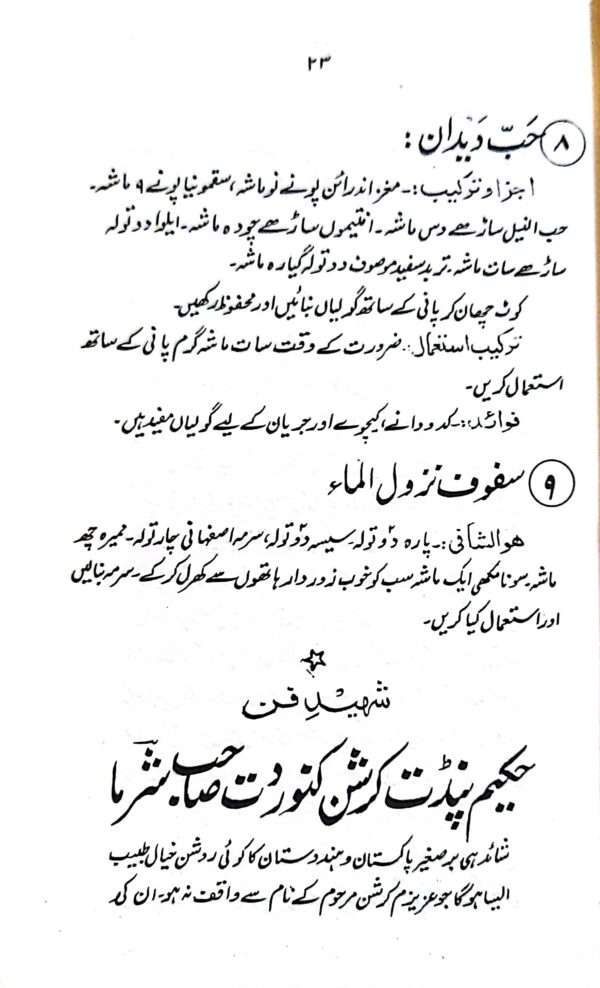 ۲۳
۸ حَبّ دَیدان :
اجزا و ترکیب :۔ مغز اندرائن پونے نو ماشہ، سقمونیا پونے ۹ ماشہ۔
حب النیل ساڑھے دس ماشہ۔ افتیموں ساڑھے چودہ ماشہ۔ ایلوا دو تولہ
ساڑھے سات ماشہ۔ تربد سفید موصوف دو تولہ گیارہ ماشہ۔
کوٹ چھان کر پانی کے ساتھ گولیاں بنائیں اور محفوظ رکھیں۔
ترکیب استعمال :۔ ضرورت کے وقت سات ماشہ گرم پانی کے ساتھ
استعمال کریں۔
فوائد :۔ کدو دانے، کیچوے اور جریان کے لیے گولیاں مفید ہیں۔
۹ سفوف نزول الماء
ھو الشافی :۔ پارہ دو تولہ، سیسہ دو تولہ، سرمہ اصفہانی چار تولہ۔ ممیرہ چھ
ماشہ۔ سونا مکھی ایک ماشہ سب کو خوب زور دار ہاتھوں سے کھرل کرکے۔ سرمہ بنالیں
اور استعمال کیا کریں۔
شہیدِ فن
حکیم پنڈت کرشن کنور دت صاحب شرما
شائد ہی برصغیر پاکستان و ہندوستان کا کوئی روشن خیال طبیب
ایسا ہوگا جو عزیزم کرشن مرحوم کے نام سے واقف نہ ہو۔ ان کی